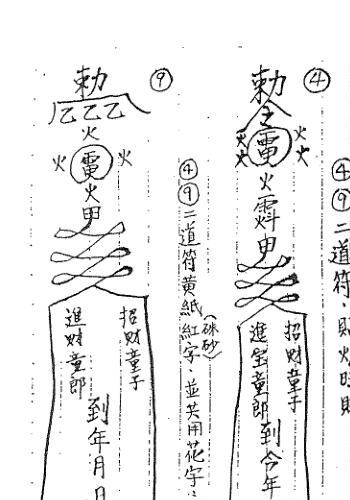 ④⑨二道符、財火旺財
④
勅
令
火火 電 火火
火
甲
招財童子
進宝童郎
到今年
④⑨二道符黃紙紅字、並共用花字、
(硃砂)
⑨
勅
乙乙乙
火
火 電 火
火
甲
招財童子
進財童郎
到年月日